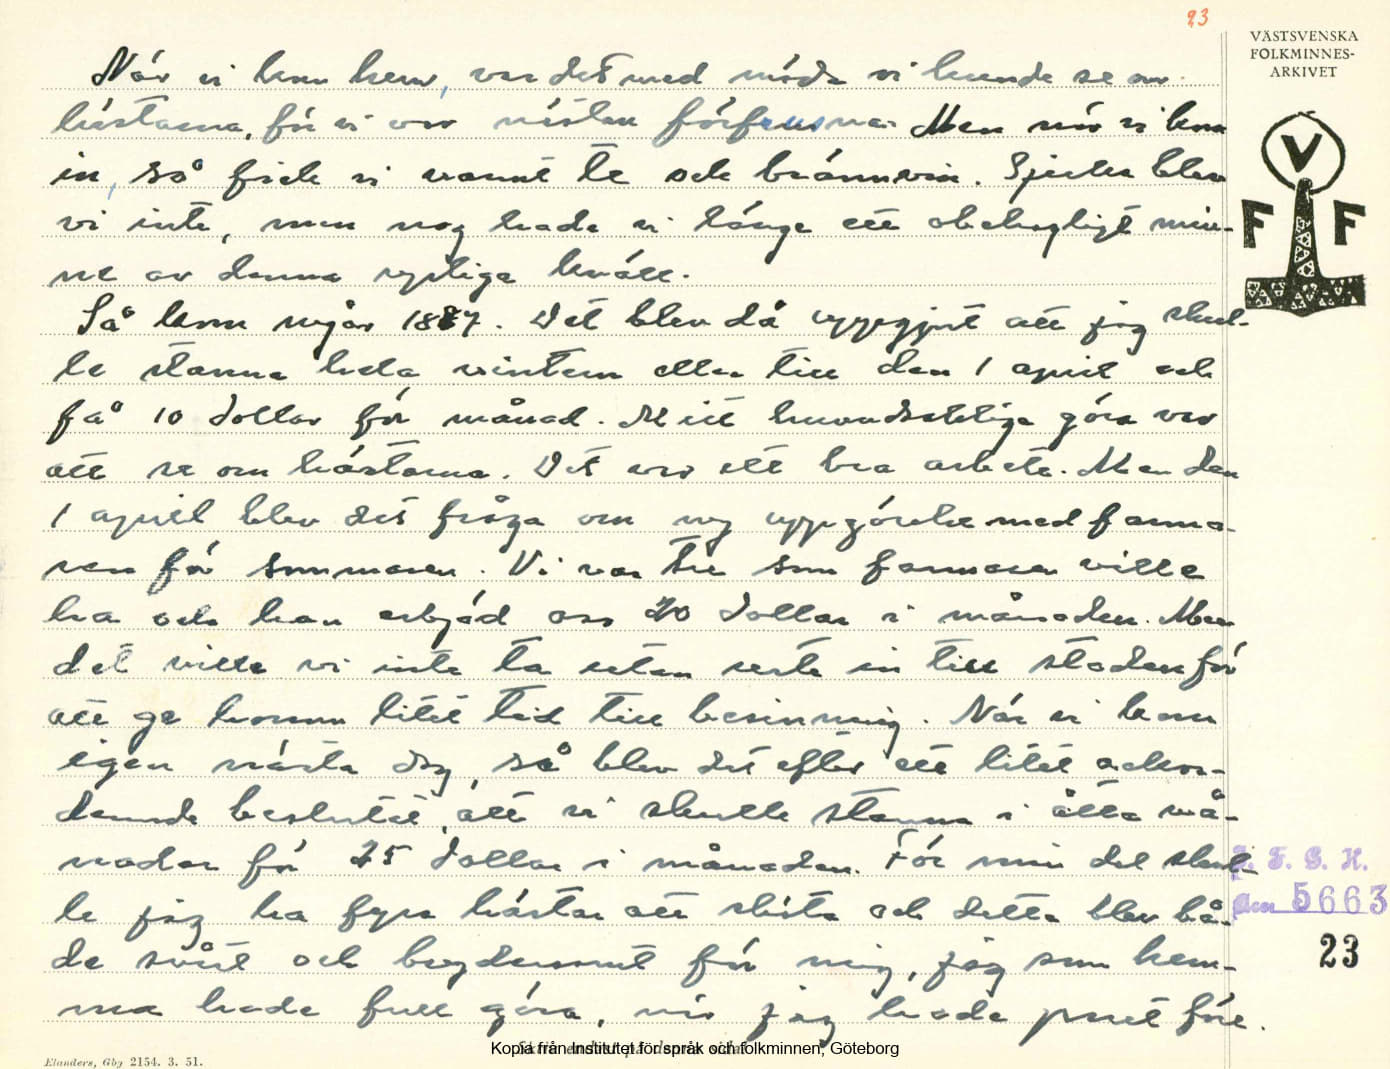 23
VÄSTSVENSKA
FOLKMINNES-
ARKIVET
När vi kom hem, var det med möda vi kunde se om
hästarna, för vi var nästan förfrusna. Men när vi kom
in, så fick vi varmt te och brännvin. Sjuka blev
vi inte, men nog hade vi länge ett obehagligt min-
ne av denna rysliga kväll.
V
F F
Så kom nyår 1887. Det blev då uppgjort att jag skul-
le stanna hela vintern eller till den 1 april och
få 10 dollar för månad. Mitt huvudsakliga göra var
att se om hästarna. Det var ett bra arbete. Men den
1 april blev det fråga om ny uppgörelse med farma-
ren för sommaren. Vi var tre som farmaren ville
ha och han erbjöd oss 20 dollar i månaden. Men
det ville vi inte ta utan reste in till staden för
att ge honom litet tid till besinning. När vi kom
igen nästa dag, så blev det efter ett litet ackor-
derande beslutat, att vi skulle stanna i åtta må-
nader för 25 dollar i månaden. För min del skul-
le jag ha fyra hästar att sköta och detta blev bå-
de svårt och bekymmersamt för mig, jag som hem-
ma hade full göra, när jag hade paret före.
I. F. G. H.
Acc 5663
23
Kopia från Institutet för språk och folkminnen, Göteborg
Elanders, Gbg 2154. 3. 51.